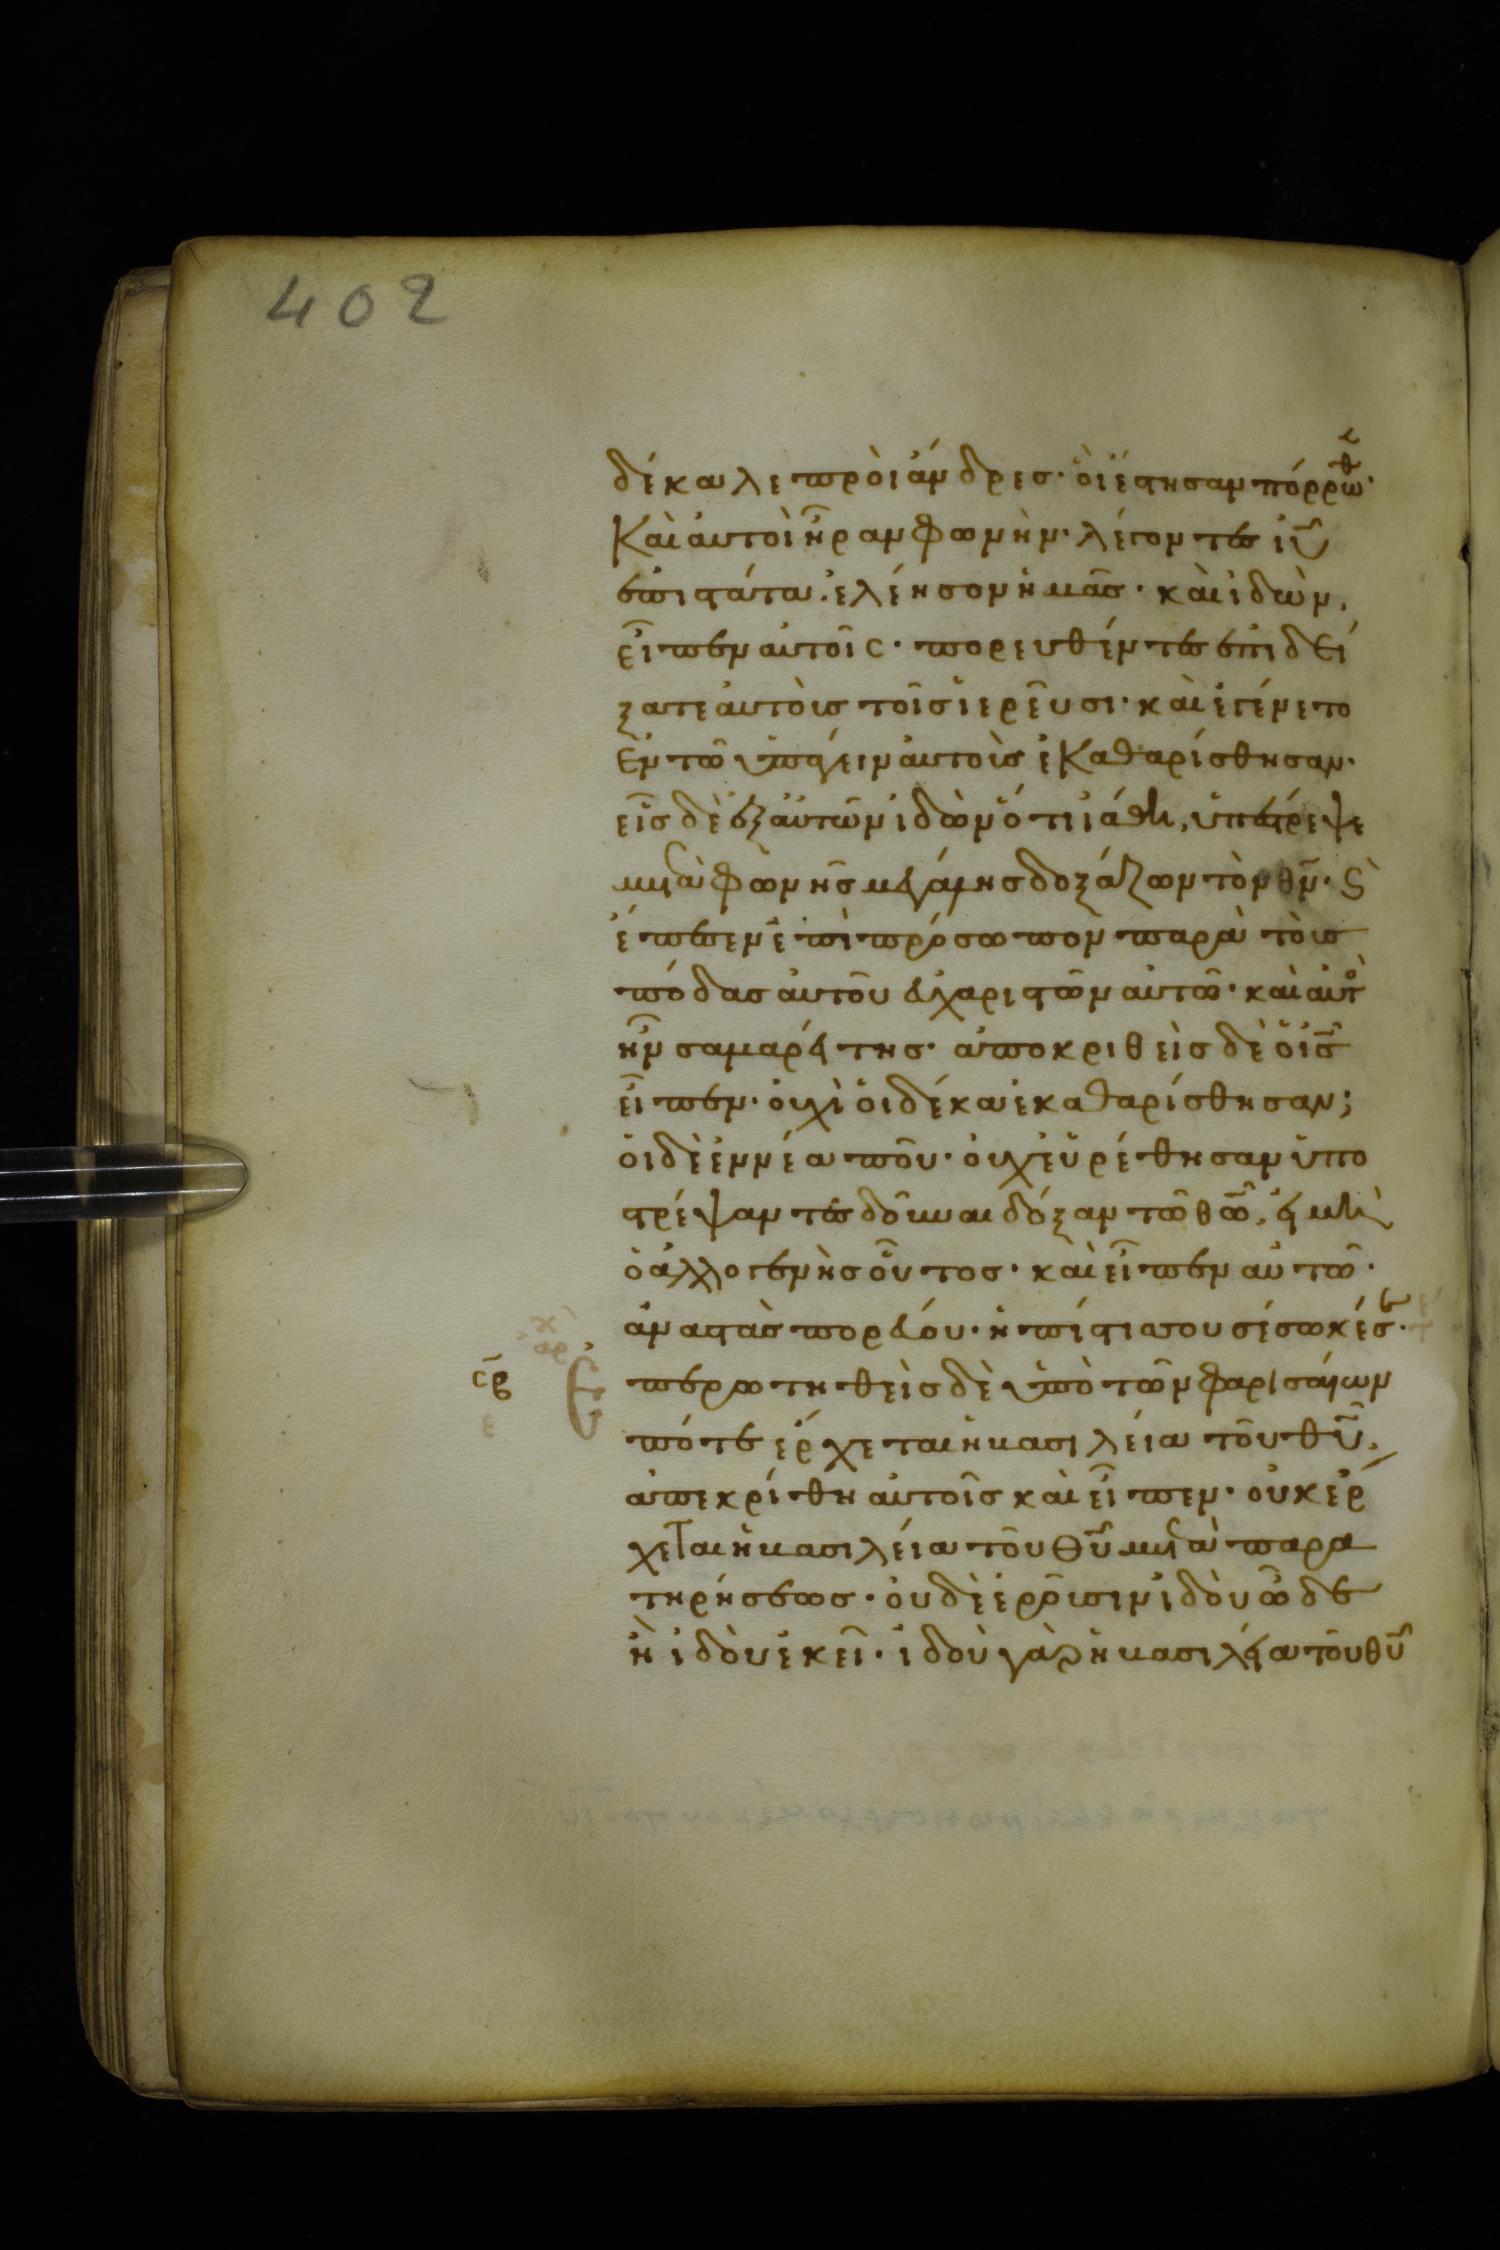 402
δέκα λεπροὶ ἄνδρες· ὁὶ ἔστησαν πόρρωθεν·
Καὶ αυτοὶ ἦραν φωνὴν· λέγοντες ιῦ
ἐπιστάτα· ἐλέησον ἡμᾶς· καὶ ἰδὼν,
εἶπεν αυτοῖς· πορευθέντες ἐπιδεί
ξατε ἑαυτοὺς τοῖς ἱερεῦσι· καὶ ἐγένετο
ἐν τῶ ὑπάγειν ἀυτοὺς ἐκαθαρίσθησαν·
εἷς δὲ ἐξ ἀυτῶν ἰδὼν ὅτι ἰάθη, ὑπέστρεψε
μετὰ φωνῆς μεγάλης δοξάζων τὸν θν̄· κὰι
ἔπεσεν ἐπὶ πρόσωπον παρὰ τοὺς
πόδας ἀυτοῦ ἐυχαριστῶν αὐτῶ· καὶ αὐτὸς
ἦν σαμαρείτης· ἀποκριθεὶς δὲ ὁ ις̄
εἶπεν· οὐχὶ ὁι δέκα ἐκαθαρίσθησαν;
ὁι δὲ ἐννέα ποῦ· οὐχ εὑρέθησαν ὑπο
στρέψαντες δοῦναι δόξαν τῶ θῶ, εἰ μὴ
ὁ ἀλλογενὴς οὗτος· καὶ εἶπεν αὐτῶ·
ἀναστὰς πορεύου· ἡ πίστις σου σέσωκέ σε·
σγ
Ἐπερωτηθεὶς δὲ ὑπὸ τῶν φαρισαίων
πότε ἔρχεται ἡ βασιλεία τοῦ θῦ,
ἀπεκρίθη ἀυτοῖς καὶ εἶπεν· οὐκ ἔρ
χεται ἡ βασιλεία τοῦ θῦ μετὰ παρα
τηρήσεως· ὀυδὲ ἐροῦσιν ἰδοὺ ὧδε
ἢ ἰδοὺ ἐκεῖ· ἰδοὺ γὰρ ἡ βασιλεία τοῦ θῦ